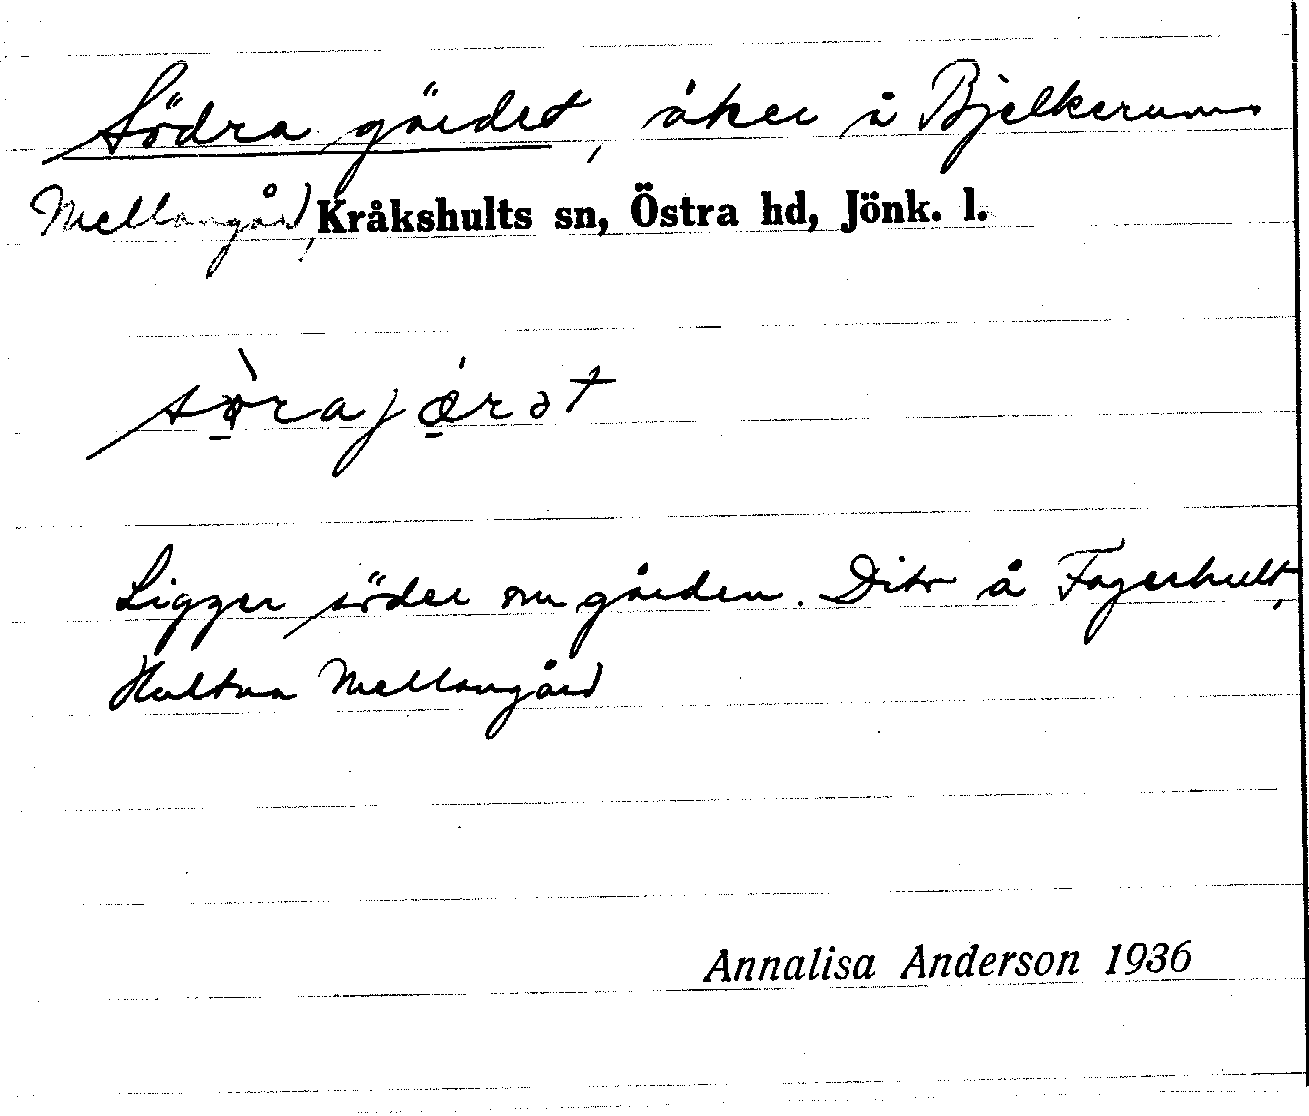 Södra gärdet, åker å Bjelkerums
Mellangård, Kråkshults sn, Östra hd, Jönk. l.
sö̀rajǽrət
Ligger söder om gården. Dito å Fagerhult,
Hultna Mellangård
Annalisa Anderson 1936